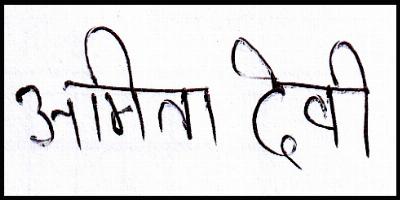 अमिता देवी